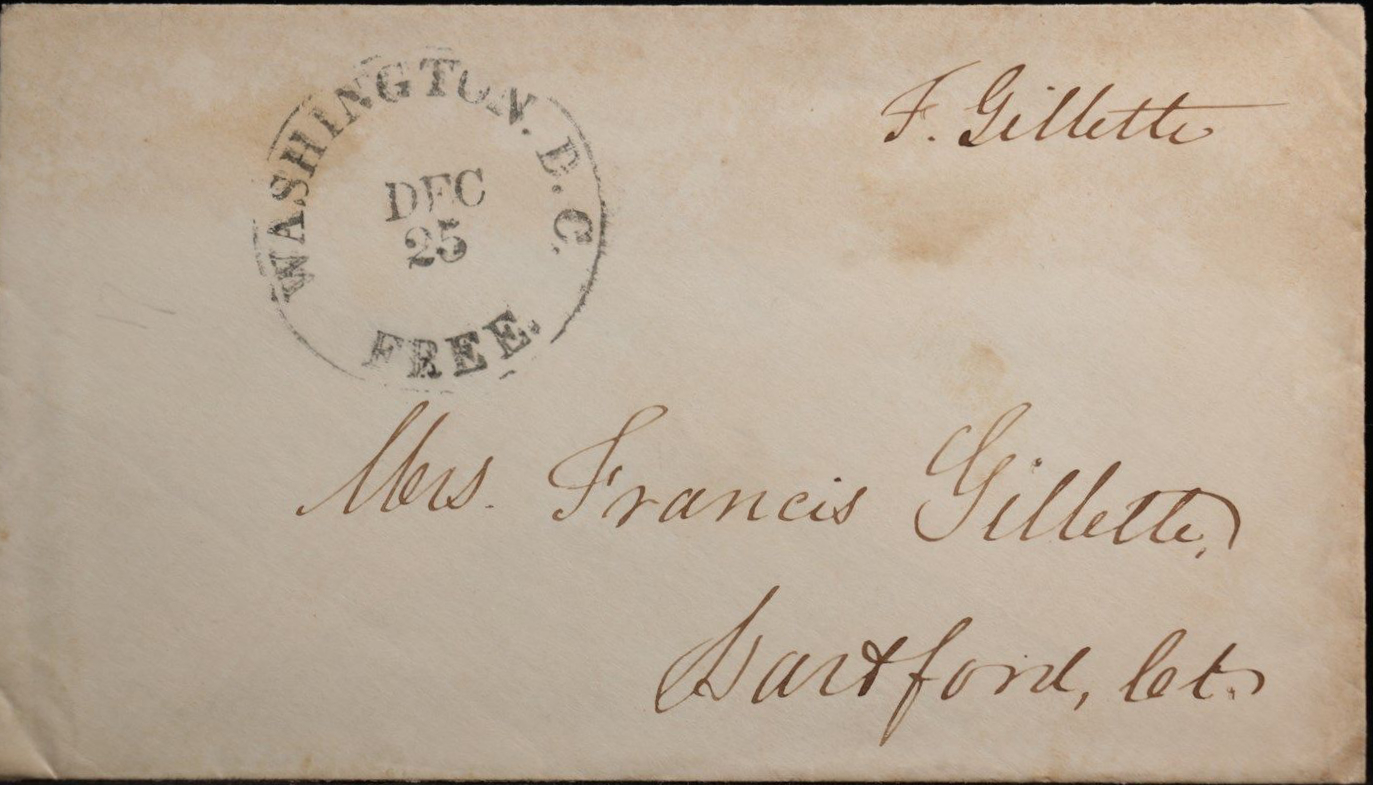 WASHINGTON. D.C.
DEC
25
FREE.
F. Gillette
Mrs. Francis Gillette,
Hartford, Ct.